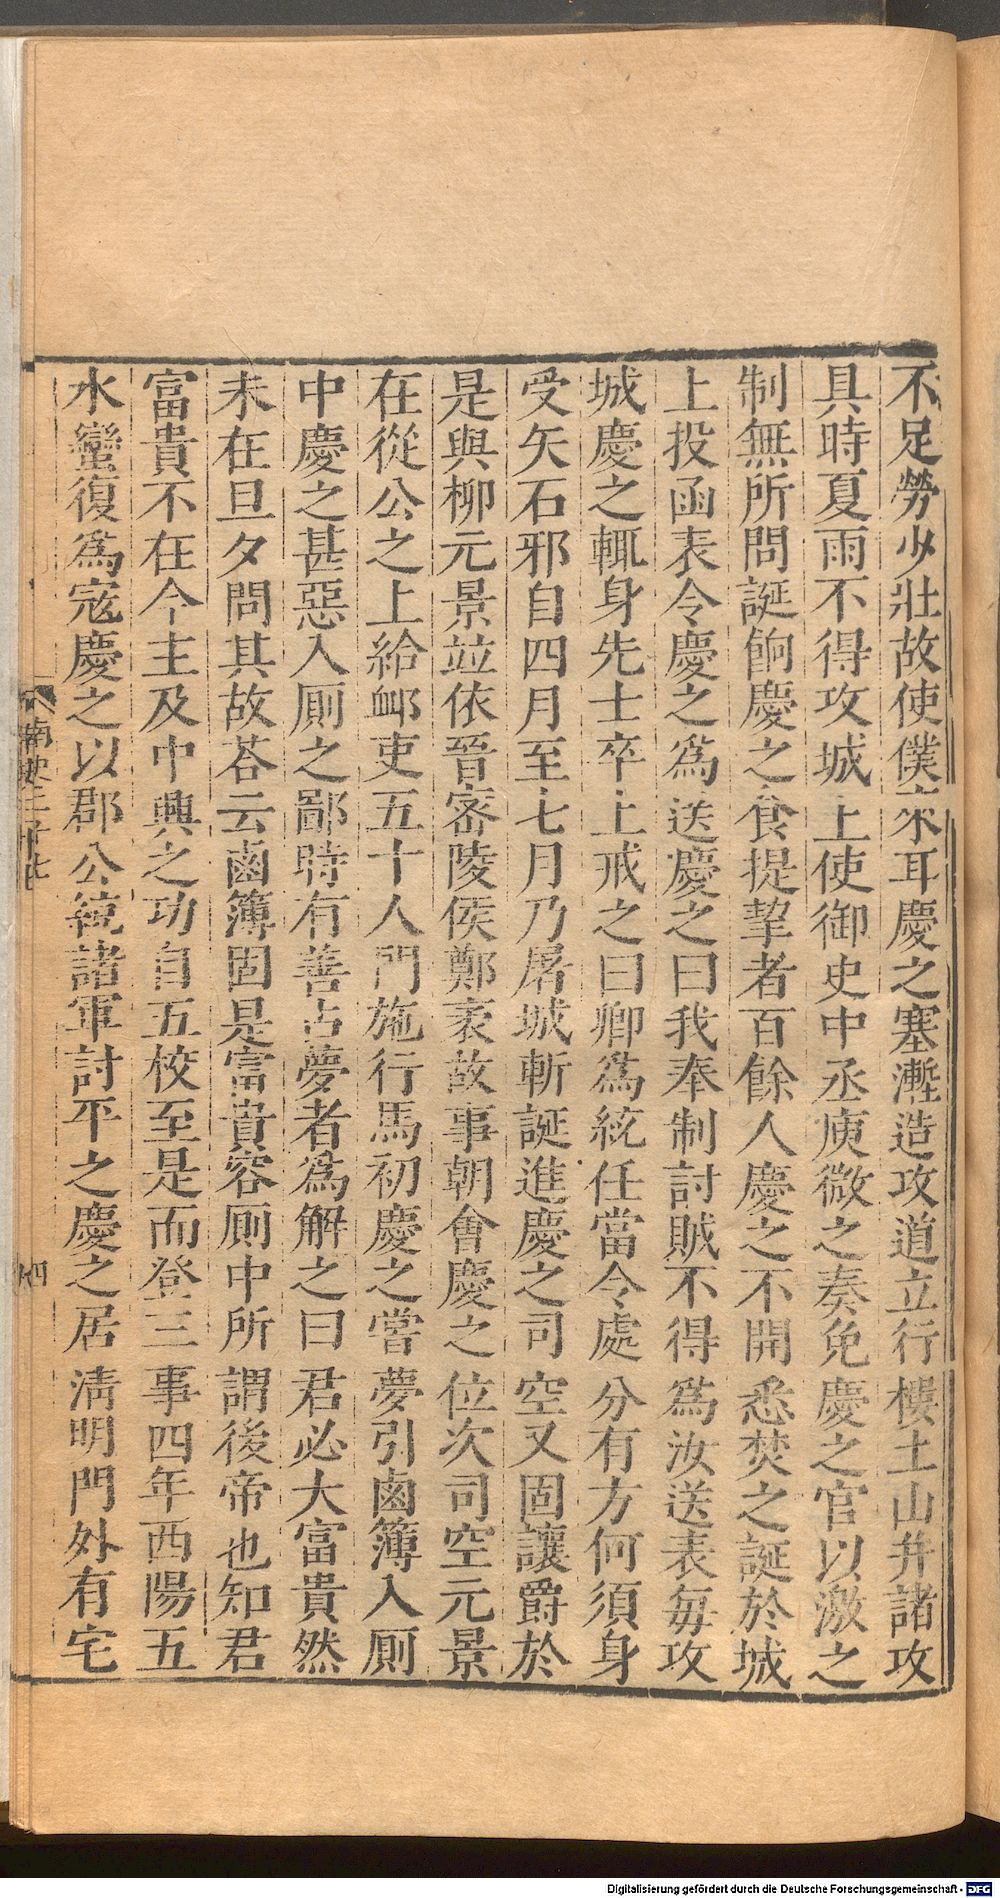 不足勞少壯故使僕來耳慶之塞漸造攻道立行樓土山并諸攻
具時夏雨不得攻城上使御史中丞庾徽之奏免慶之官以激之
制無所問誕餉慶之食提挈者百餘人慶之不開悉焚之誕於城
上投函表令慶之為送慶之曰我奉制討賊不得為汝送表每攻
城慶之輒身先士卒上戒之曰卿為統任當令處分有方何須身
受矢石邪自四月至七月乃屠城斬誕進慶之司空又固讓爵於
是與柳元景並依晉密陵侯鄭袤故事朝會慶之位次司空元景
在從公之上給卹吏五十人門施行馬初慶之嘗夢引鹵簿入厠
中慶之甚惡入厠之鄙時有善占夢者為解之曰君必大富貴然
未在旦夕問其故荅云鹵簿固是富貴容厠中所謂後帝也知君
富貴不在今主及中興之功自五校至是而登三事四年西陽五
水蠻復為寇慶之以郡公統諸軍討平之慶之居淸明門外有宅
南史三十七
四
Digitalisierung gefördert durch die Deutsche Forschungsgemeinschaft - DFG